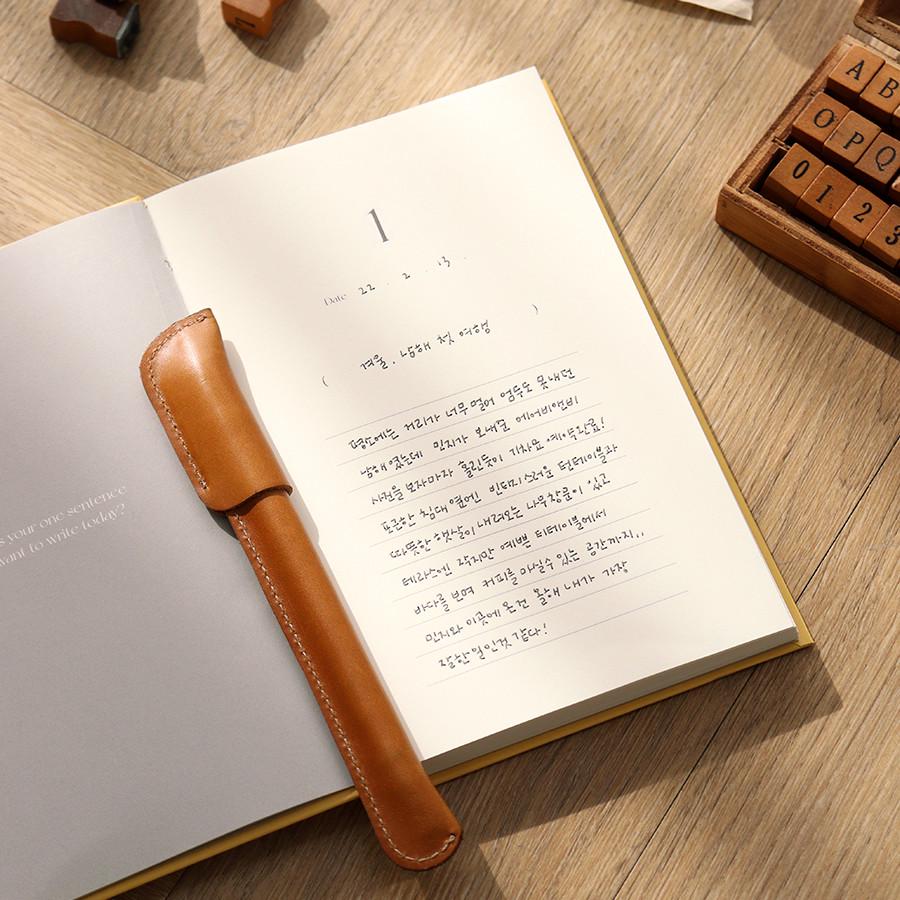 s your one sentence
want to write today?
1
Date 22 . 2 . 13 .
( 겨울, 남해 첫 여행 )
평소에는 거리가 너무 멀어 엄두도 못내던
남해였는데 민지가 보내준 에어비앤비
사진을 보자마자 홀린듯이 기차표 예약완료!
포근한 침대 옆엔 빈티지스러운 턴테이블과
따뜻한 햇살이 내려오는 나무창문이 있고
테라스엔 작지만 예쁜 티테이블에서
바다를 보며 커피를 마실수 있는 공간까지..
민지와 이곳에 온건 올해 내가 가장
잘한일인것 같다!
A B
O P Q
0 1 2 3